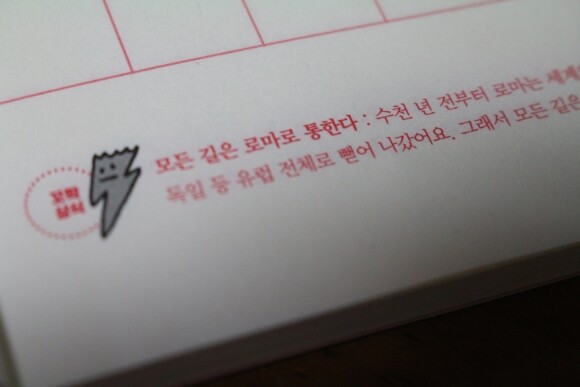 꼬학
상식
모든 길은 로마로 통한다 : 수천 년 전부터 로마는 세계의
독일 등 유럽 전체로 뻗어 나갔어요. 그래서 모든 길은